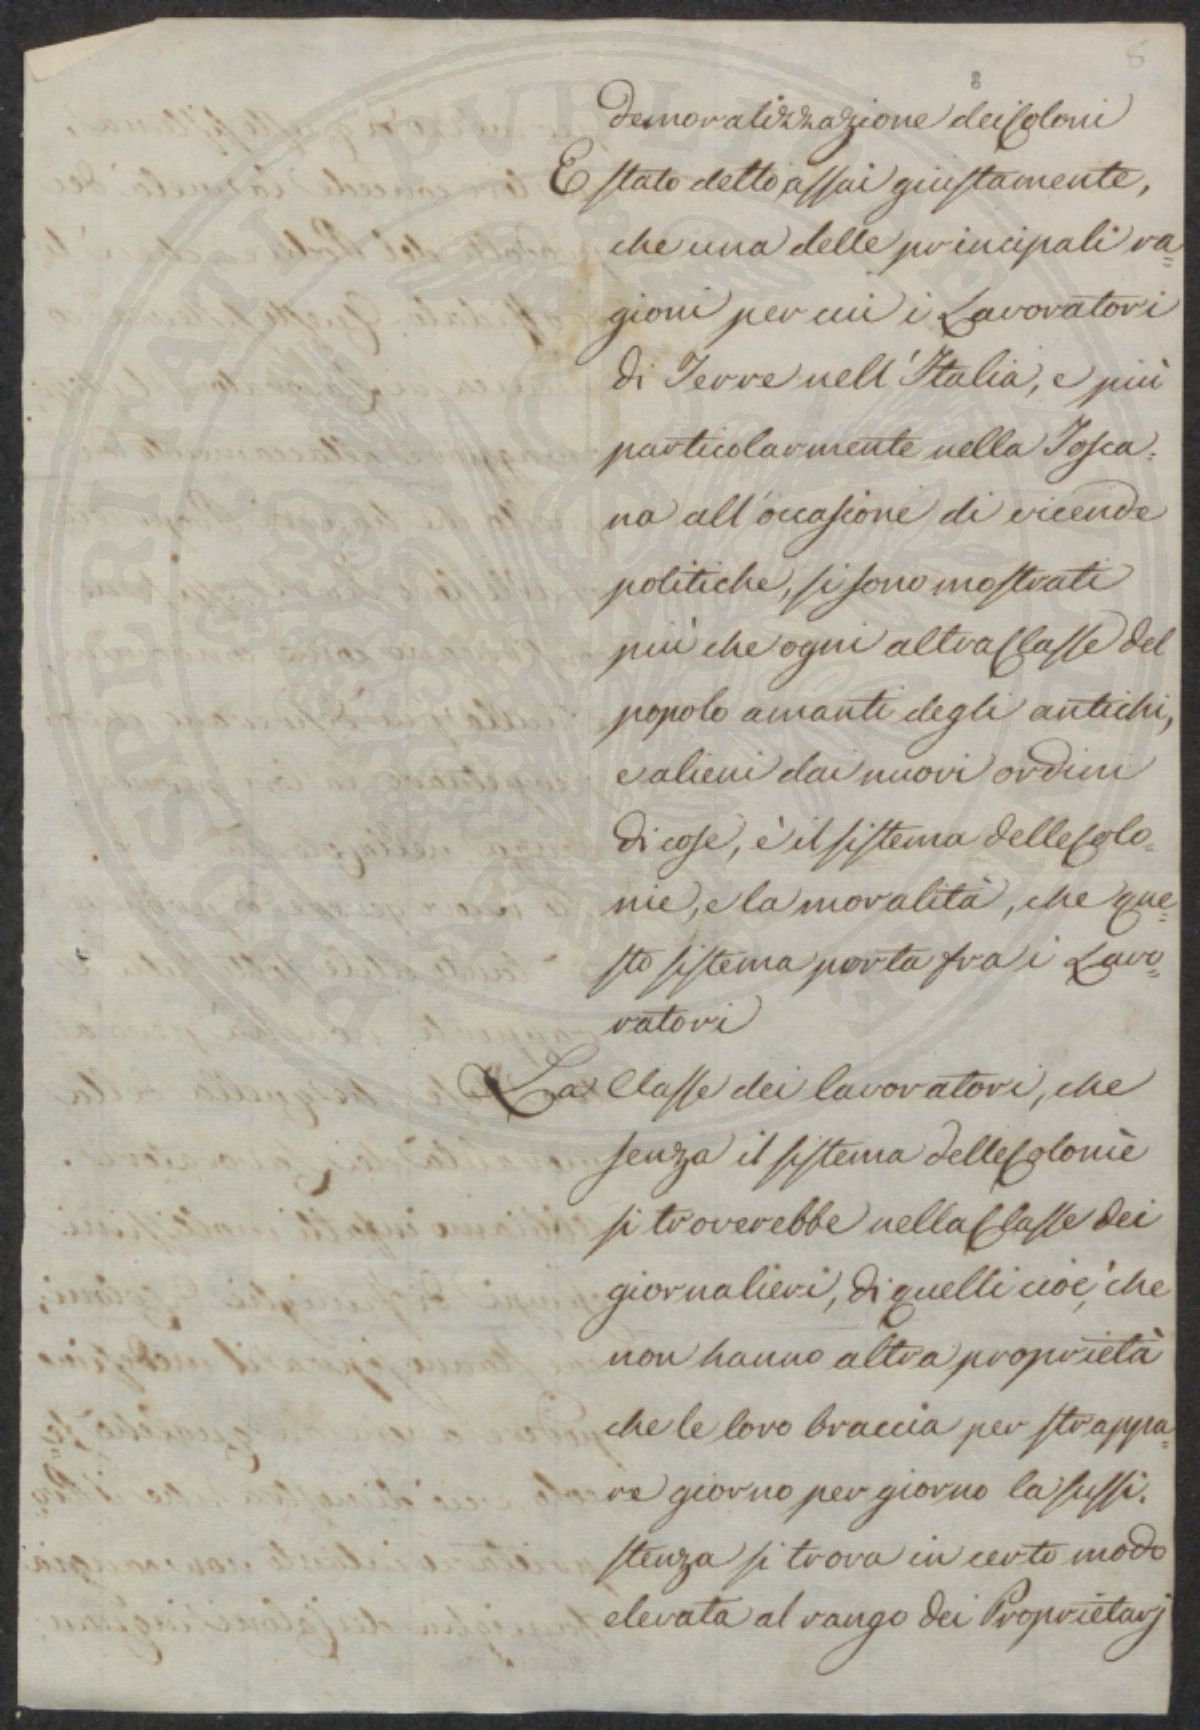 8
8
demoralizzazione dei Coloni
E stato detto assai giustamente,
che una delle principali ra=
gioni per cui i Lavoratori
di Terre nell'Italia, e più
particolarmente nella Tosca=
na all'occasione di vicende
politiche, si sono mostrati
più che ogni altra Classe del
popolo amanti degli antichi,
e alieni dai nuovi ordini
di cose, è il sistema delle Colo=
nie, e la moralità, che que=
sto sistema porta fra i Lavo=
ratori
La Classe dei lavoratori, che
senza il sistema delle Colonie
si troverebbe nella Classe dei
giornalieri, di quelli cioè, che
non hanno altra proprietà
che le loro braccia per strappa=
re giorno per giorno la sussi=
stenza si trova in certo modo
elevata al rango dei Proprietarj